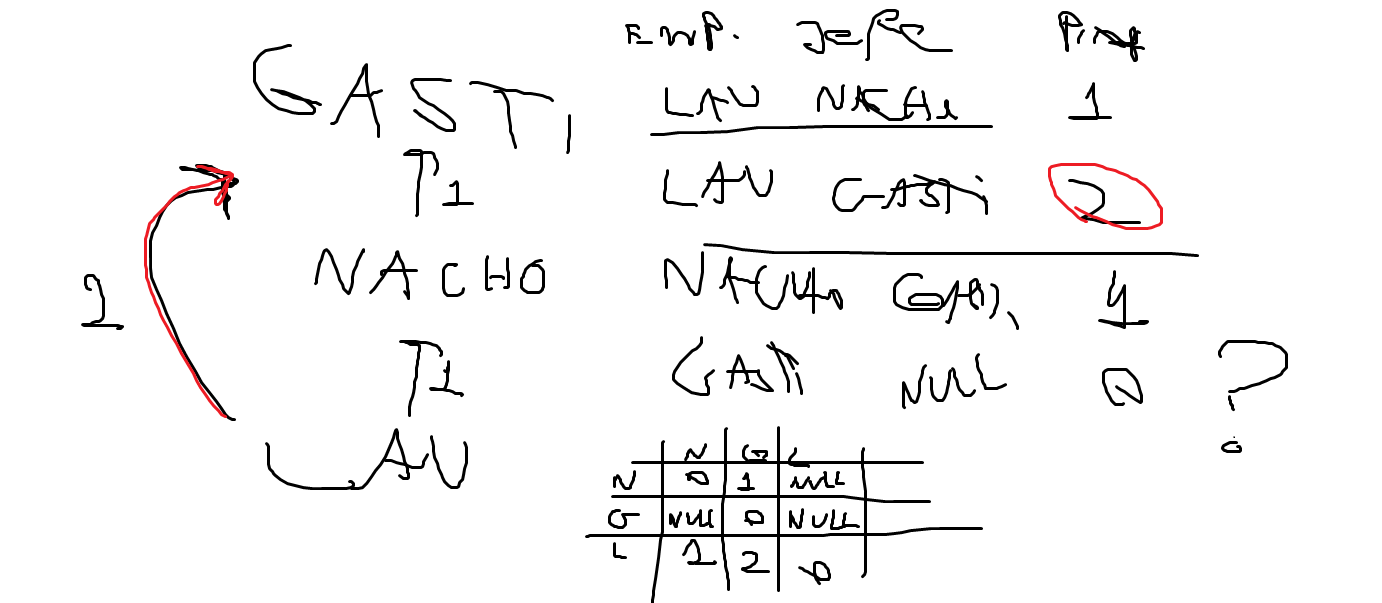 GASTI
↑1
NACHO
↑1
LAU
2
EMP. JEFE
LAU NACHO 1
LAU GASTI 2
NACHO GASTI 1
GASTI NULL 0 ?
N G L
N 0 1 NULL
G NULL 0 NULL
L 1 2 0